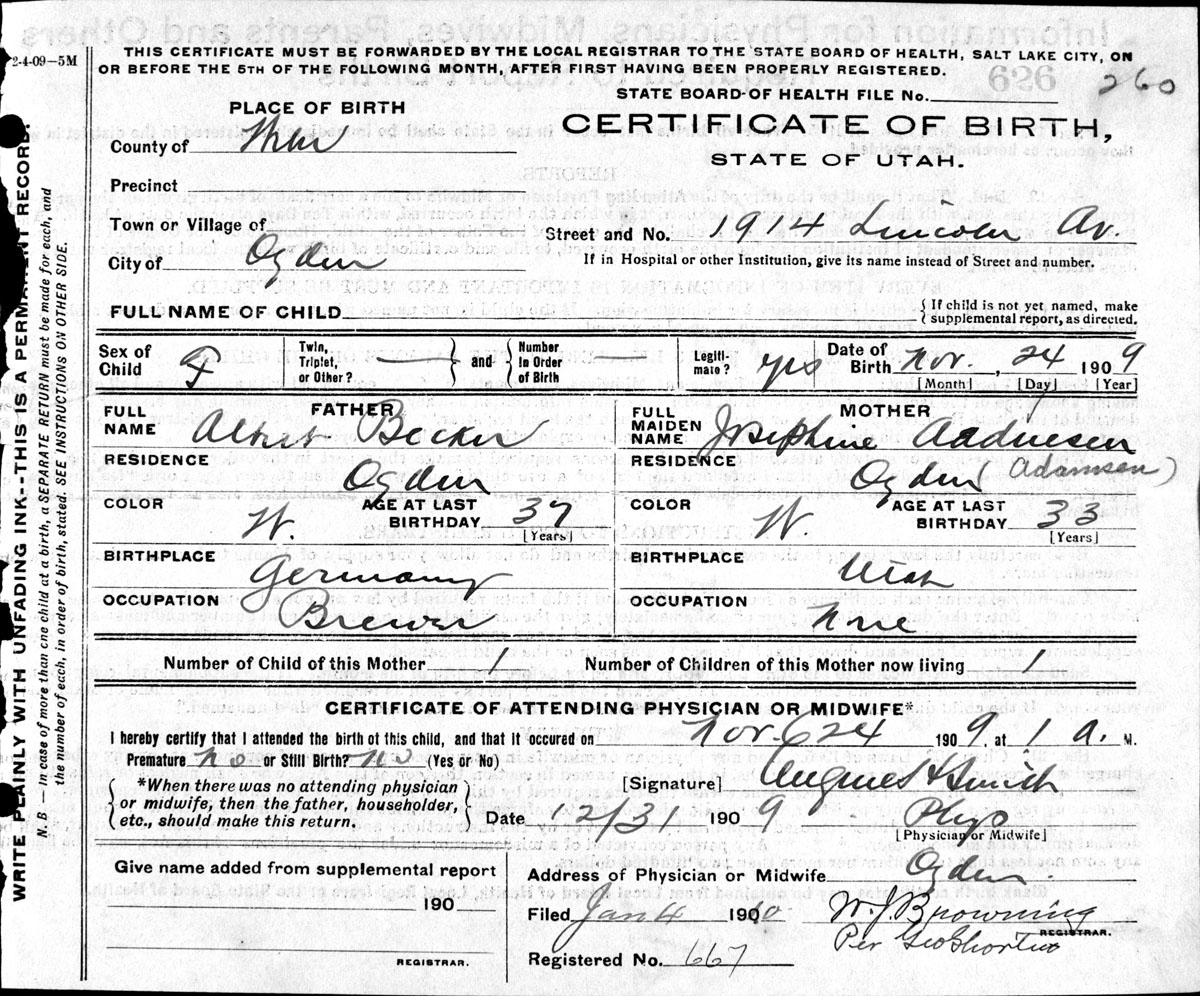 2-4-09—5M
THIS CERTIFICATE MUST BE FORWARDED BY THE LOCAL REGISTRAR TO THE STATE BOARD OF HEALTH, SALT LAKE CITY, ON
OR BEFORE THE 5TH OF THE FOLLOWING MONTH, AFTER FIRST HAVING BEEN PROPERLY REGISTERED.
STATE BOARD OF HEALTH FILE No. 260
PLACE OF BIRTH
CERTIFICATE OF BIRTH,
STATE OF UTAH.
County of
Precinct
Town or Village of
Street and No. 1914 Lincoln Av.
City of Ogden
If in Hospital or other Institution, give its name instead of Street and number.
FULL NAME OF CHILD
{ If child is not yet named, make
supplemental report, as directed.
Sex of Child F
Twin, Triplet, or Other? — } and { Number in Order of Birth —
Legiti- mate? yes
Date of Birth Nov. , 24 1909
[Month] [Day] [Year]
FATHER
FULL NAME Albert Becker
MOTHER
FULL MAIDEN NAME Josephine
RESIDENCE Ogden
RESIDENCE Ogden (Adamsen)
COLOR W. AGE AT LAST BIRTHDAY 37 [Years]
COLOR W. AGE AT LAST BIRTHDAY 33 [Years]
BIRTHPLACE Germany
BIRTHPLACE Utah
OCCUPATION Brewer
OCCUPATION None
Number of Child of this Mother 1 Number of Children of this Mother now living 1
CERTIFICATE OF ATTENDING PHYSICIAN OR MIDWIFE*
I hereby certify that I attended the birth of this child, and that it occured on Nov. 24 1909, at 1 a. M.
Premature no or Still Birth? No (Yes or No)
[Signature] Smith
*When there was no attending physician
or midwife, then the father, householder,
etc., should make this return.
Date 12/31 1909 Phys
[Physician or Midwife]
Give name added from supplemental report
190
REGISTRAR.
Address of Physician or Midwife Ogden
Filed Jan 4 1910 W. J. Browning
REGISTRAR.
Per Geo
Registered No. 667
WRITE PLAINLY WITH UNFADING INK--THIS IS A PERMANENT RECORD.
N. B.—In case of more than one child at a birth, a SEPARATE RETURN must be made for each, and
the number of each, in order of birth, stated. SEE INSTRUCTIONS ON OTHER SIDE.